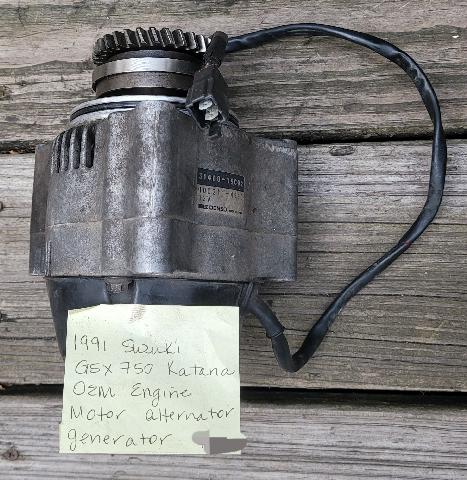 12V
DENSO
1991 Suzuki
GSX 750 Katana
OEM Engine
Motor alternator
generator